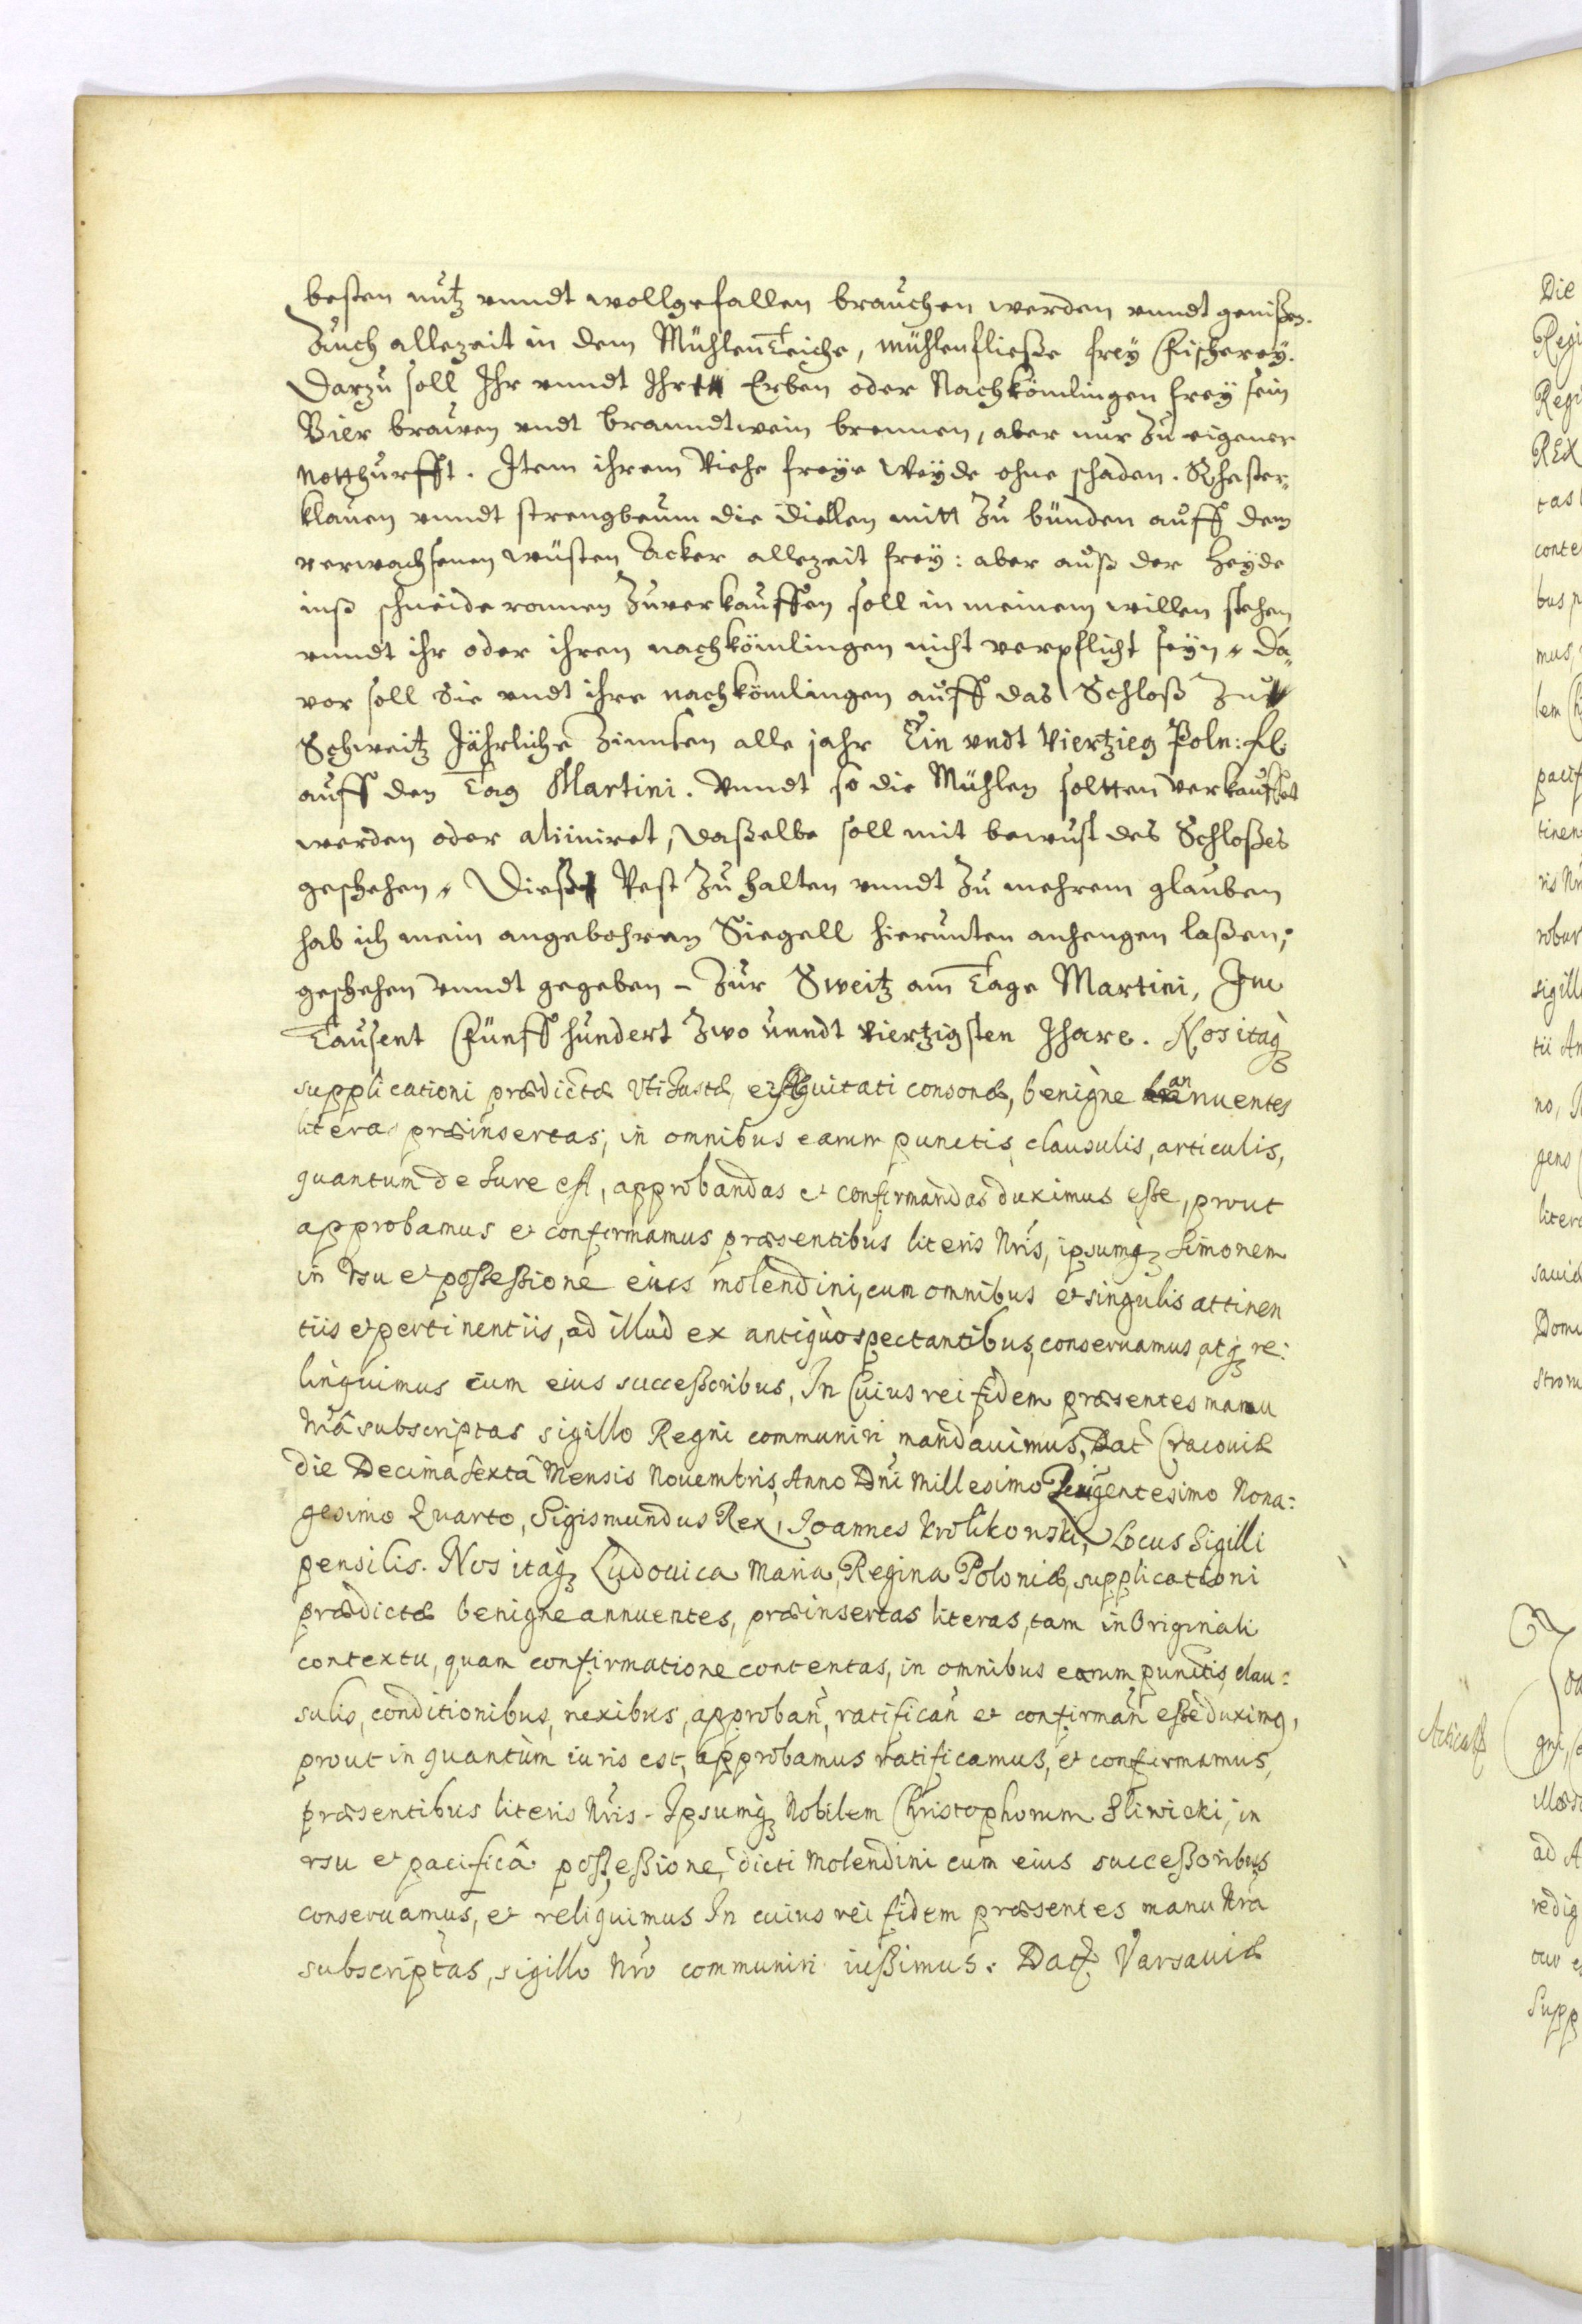 besten nutz vnndt wollgefallen brauchen werden vnndt genißen.
Auch allezeit in dem MühlenTeiche, mühlenfließe frey Fischerey.
Darzu soll Ihr vnndt Ihre Erben oder Nachkömlingen frey sein
Bier brawen vndt branndtwein brennen, aber nur Zu eigener
Notthurfft. Item ihrem Viehe freye Weyde ohne schaden.
klauen vnndt strengbeum die diellen mitt Zu bünden auff dem
verwachsenen wüsten Acker allezeit frey: aber auß der Heyde
inß schneide ronnen Zuverkauffen soll in meinem willen stehen
vnndt ihr oder ihren nachkömlingen nicht verpflicht seyn. Da-
vor soll Sie vndt ihre nachkömlingen auff das Schloß Zu
Schweitz Jährliche Zinnsen alle jahr Ein vndt Viertzieg Poln: fl.
auff den Tag Martini. Vnndt so die Mühlen soltten verkauffet
werden oder alimiret, daßelbe soll mit bewust des Schloßes
geschehen. Dieß Vest Zu halten vnndt Zu mehrem glauben
hab ich mein angebohren Siegell hierunten anhengen laßen;
geschehen vnndt gegeben - Zur Sweitz am Tage Martini, Im
Tausent Fünff hundert Zwo unndt viertzigsten Jhare. Nos itaq
supplicationi prædictæ vti Justæ, et Æquitati consonæ, benigne annuentes
litera præinsertas, in omnibus earum punctis clausulis, articulis,
quantum de Iure est, approbandas et confirmandas duximus eße, prout
approbamus et confirmamus præsentibus literis Nris, ipsumq Simonem
in vsu et poßeßione eius molendini, cum omnibus et singulis attinen
tiis et pertinentiis, ad illud ex antiquo spectantibus, conseruamus atq re:
linquimus cum eius succeßoribus, In Cuius rei fidem præsentes manu
Nrâ subscriptas sigillo Regni communiri mandauimus, Dat Cracouiæ
die Decima sextâ Mensis Nouembris, Anno Dni Millesimo Quigentesimo Nona:
gesimo Quarto, Sigismundus Rex, Joannes Krolikowski, Locus Sigilli
pensilis. Nos itaq Ludouica Maria, Regina Poloniæ, supplicationi
prædictæ benigne annuentes, præinsertas literas, tam in Originali
contextu, quam confirmatione contentas, in omnibus earum punctis, clau:
sulis, conditionibus, nexibus, approban, ratifican et confirman eße duximg,
prout in quantum iuris est, approbamus ratificamus, et confirmamus,
præsentibus literis Nris. Ipsumq Nobilem Christophorum Sliwicki, in
vsu et pacificâ poßeßione, dicti Molendini cum eius succeßoribus
conseruamus, et reliquimus In cuius rei fidem præsentes manu Nra
subscriptas, sigillo Nro communiri iußimus. Dat Varsauiæ